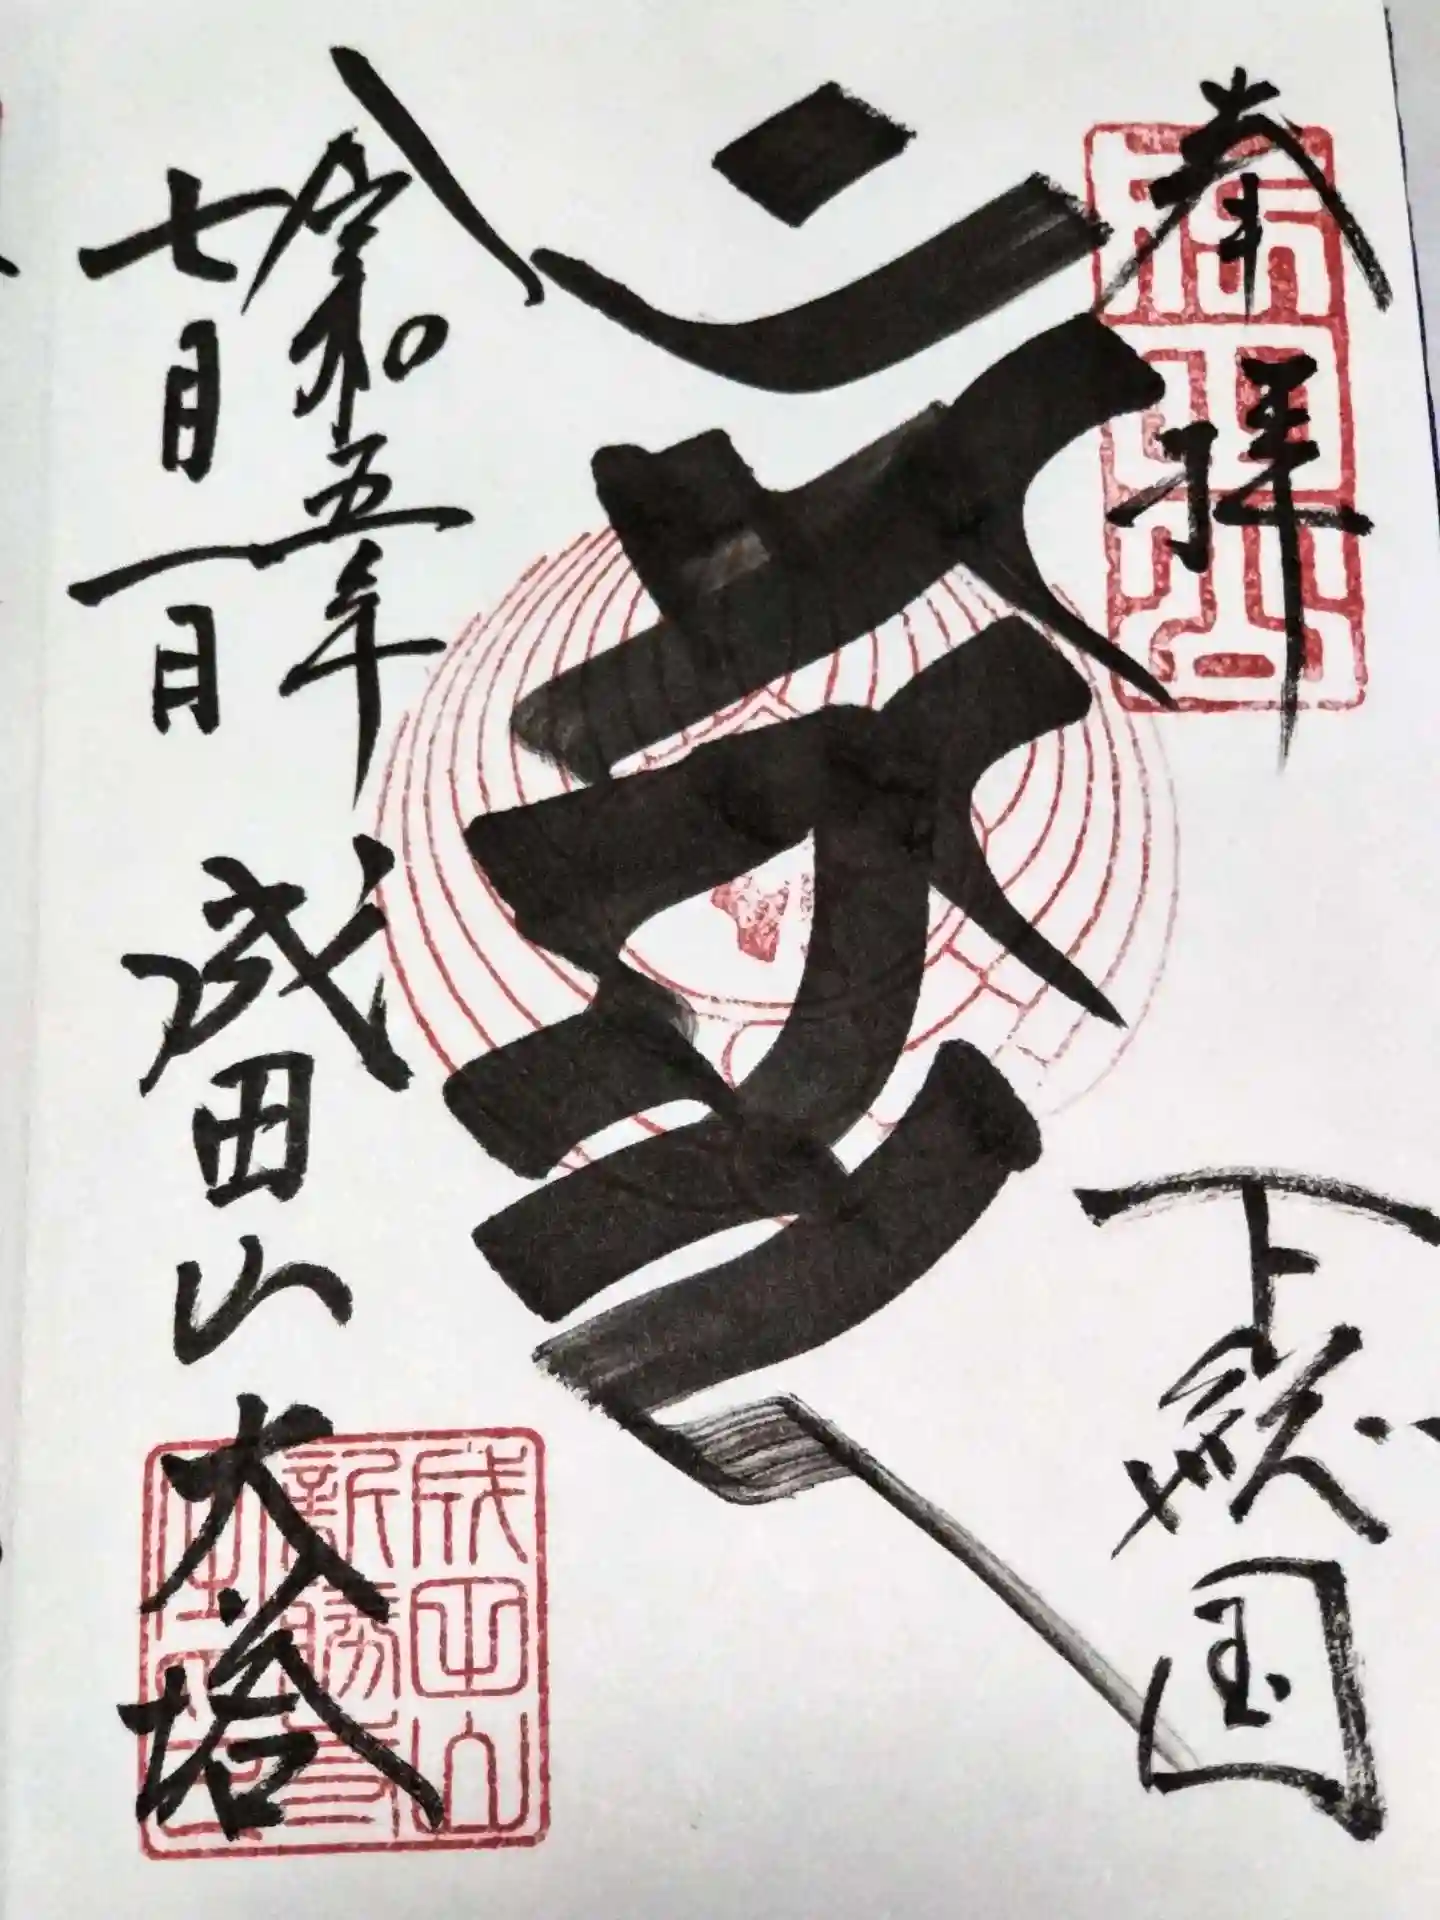 奉拝
下総国
令和五年
七月一日
成田山 大塔
成田山
新勝寺